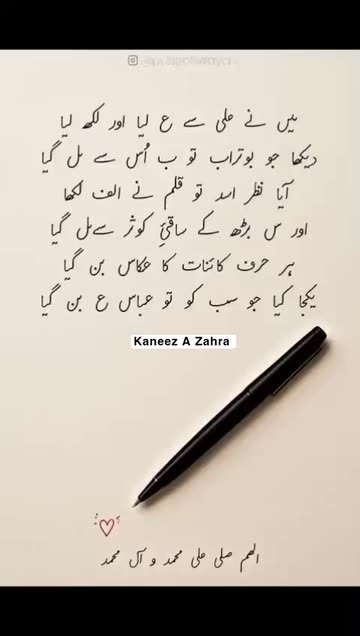 میں نے علی سے ع لیا اور لکھ لیا
دیکھا جو بوتراب تو ب اُس سے مل گیا
آیا نظر اسد تو قلم نے الف لکھا
اور س بڑھ کے ساقئِ کوثر سے مل گیا
ہر حرف کائنات کا عکاس بن گیا
یکجا کیا جو سب کو تو عباس ع بن گیا
Kaneez A Zahra
الھم صلی علی محمد و آل محمد